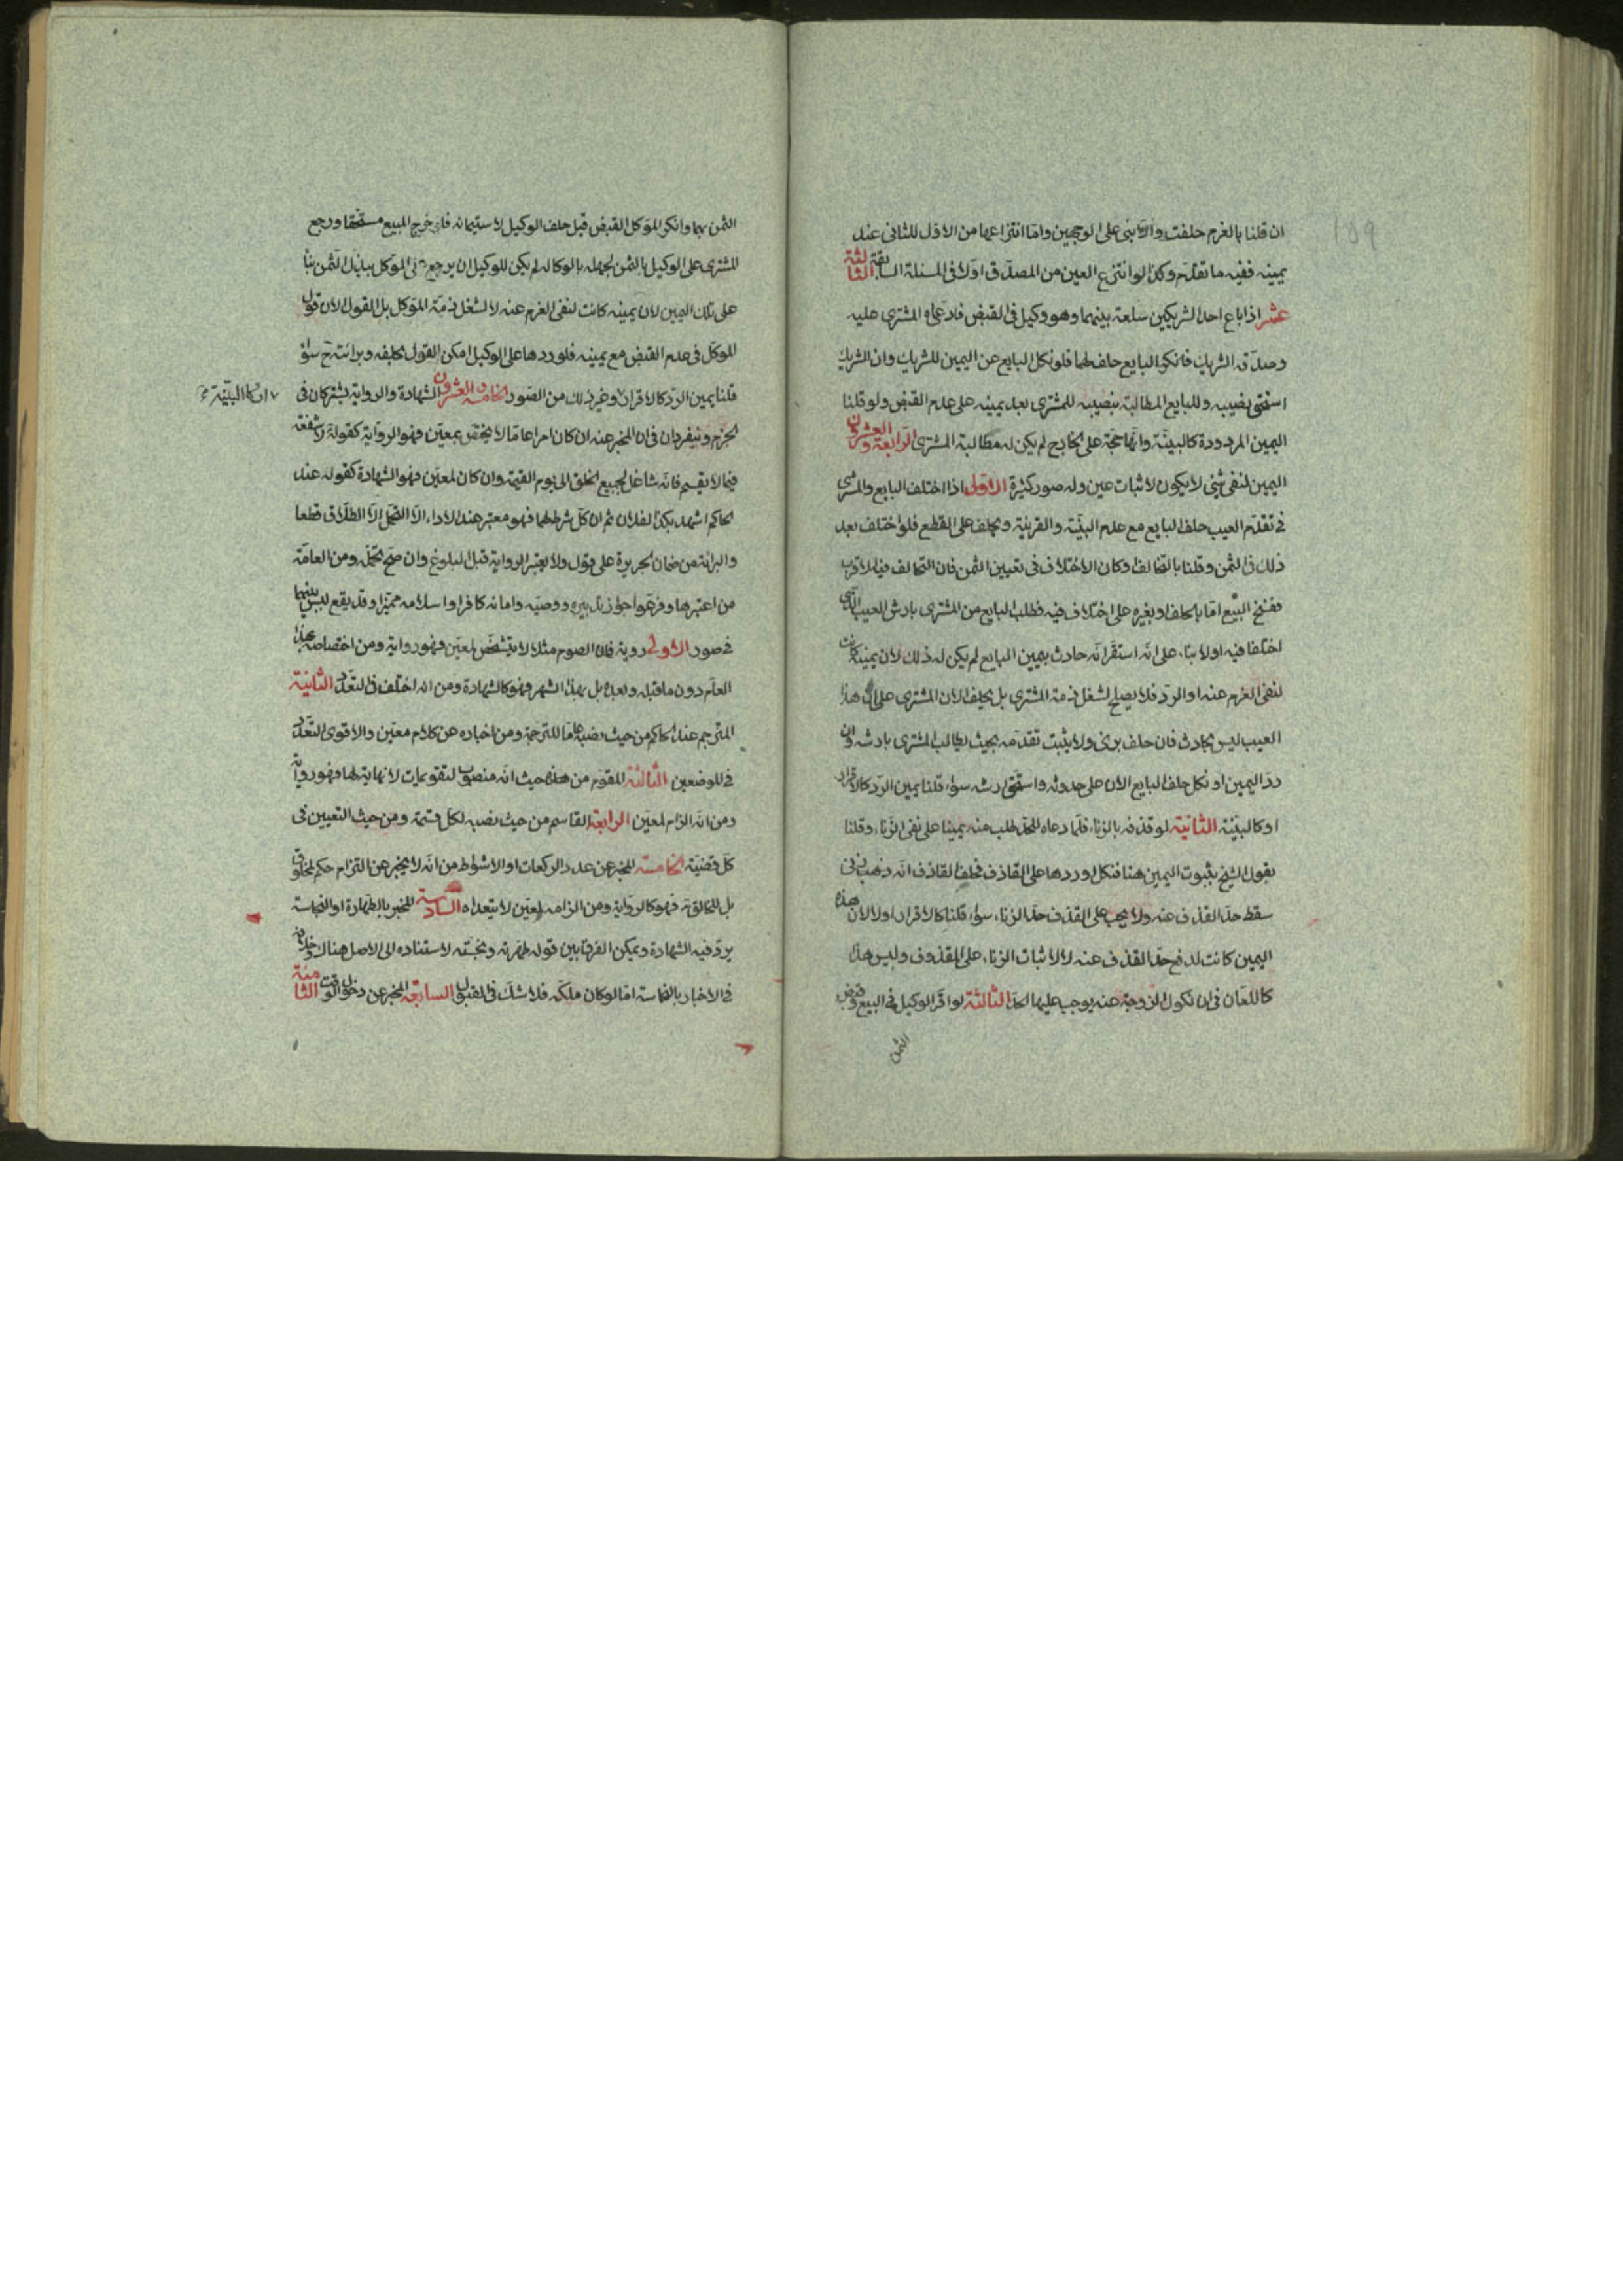 ان قلنا بالغرم حلفت والا بنى على الوجهين واما انتزاعها من الاول للثانى عند
يمينه ففيه ما تقدم وكذا لو انتزع العين من المصدق اولا فى المسئلة السابقة الثالثة
عشر اذا باع احد الشريكين سلعة بينهما وهو وكيل فى القبض فادعى المشترى عليه
وصدقه الشريك فانكر البايع حلف لهما فلو نكل البايع عن اليمين للشريك وان الشريك
استحق نصيبه وللبايع المطالبة بنصيبه للمشترى بعد يمينه على عدم القبض ولو قلنا
اليمين المردودة كالبينة وانها حجة على الخارج لم يكن له مطالبة المشترى الرابعة والعشرون
اليمين لنفى شئ لا يكون لاثبات عين وله صور كثيرة الاولى اذا اختلف البايع والمشترى
فى تقدم العيب حلف البايع مع عدم البينة والقرينة ويحلف على القطع فلو اختلف بعد
ذلك فى الثمن وقلنا بالتخالف او كان الاختلاف فى تعيين الثمن فان التحالف فيه الاقرب
ففسخ البيع اما بالحلف او بغيره على اختلاف فيه فطلب البايع من المشترى بارش العيب الذى
اختلفا فيه اولا بناء على انه استقر انه حادث بيمين البايع لم يكن له ذلك لان يمينه كانت
لنفى الغرم عنه او الرد فلا يصلح لشغل ذمة المشترى بل يحلف الان المشترى على ان هذا
العيب ليس بحادث فان حلف برئ ولا يثبت تقدمه بحيث يطالب المشترى بارشه وان
رد اليمين او نكل حلف البايع الان على حدوثه واستحق ارشه سواء قلنا يمين الرد كالاقرار
او كالبينة الثانية لو قذفه بالزناء فلما دعاه للحد طلب منه يمينا على نفى الزناء وقلنا
بقول الشيخ بثبوت اليمين هنا فنكل او ردها على القاذف فحلف القاذف انه زنى
سقط حد القذف عنه ولا يجب على القذف حد الزناء سواء قلنا كالاقرار اولا لان هذه
اليمين كانت لدفع حد القذف عنه لا لاثبات الزناء على المقذوف وليس هذا
كاللعان فى ان نكول الزوجة عنه يوجب عليها الحد الثالثة لو اقر الوكيل فى البيع وقبض
الثمن
الثمن بهما وانكر الموكل القبض قبل حلف الوكيل لاستيمانه فلو خرج المبيع مستحقا ورجع
المشترى على الوكيل بالثمن لجهله بالوكالة لم يكن للوكيل ان يرجع على الموكل ببذل الثمن بناء
على تلك اليمين لان يمينه كانت لنفى الغرم عنه لا لشغل ذمة الموكل بل القول الان قول
الموكل فى عدم القبض مع يمينه فلو ردها على الوكيل امكن القول بحلفه وبرائته ح سواء
قلنا يمين الرد كالاقرار وغير ذلك من الصور الخامسة والعشرون الشهادة والرواية يشتركان فى
او كالبينة
الجزم وينفردان فى ان المخبر عنه ان كان امرا عاما لا يختص بمعين فهو الرواية كقوله لا شفعة
فيما لا يقسم فانه شاغل لجميع الخلق الى يوم القيمة وان كان لمعين فهو الشهادة كقوله عند
الحاكم اشهد بكذا لفلان ثم ان كل شرطهما فهو معتبر عند الاداء الا التحمل الا الطلاق قطعا
والبرائة من ضمان الجريرة على قول ولا يعتبر الرواية قبل البلوغ وان صح تحمله ومن العامة
من اعتبرها وفرعوا جواز تدبيره ووصيته وامانه كافرا واسلامه مميزا وقد يقع لبس بينهما
فى صور الاولى روية فان الصوم مثلا لا يتشخص لمعين فهو رواية ومن اختصاصه بهذا
العام دون ما قبله وبعده بل بهذا الشهر فهو كالشهادة ومن انه اختلف فى التعدد الثانية
المترجم عند الحاكم من حيث نصبه عاما للترجمة ومن اخباره عن كلام معين والاقوى التعدد
فى الموضعين الثالثة المقوم من حيث انه منصوب لتقويمات لا نهاية لها فهو رواية
ومن انه الزام لمعين الرابعة القاسم من حيث نصبه لكل قسمة ومن حيث التعيين فى
كل قضية الخامسة المخبر عن عدد الركعات او الاشواط من انه لا يخبر عن التزام حكم لمخلوق
بل للخالق فهو كالرواية ومن الزامه لمعين لا يتعداه السادسة المخبر بالطهارة او النجاسة
يرد فيه الشهادة ويمكن الفرق بين قوله طهرته ونجسته لاستناده الى الاصل هناك وخلافه
فى الاخبار بالنجاسة اما لو كان ملكه فلا شك فى القبول السابعة المخبر عن دخول الوقت الثامنة